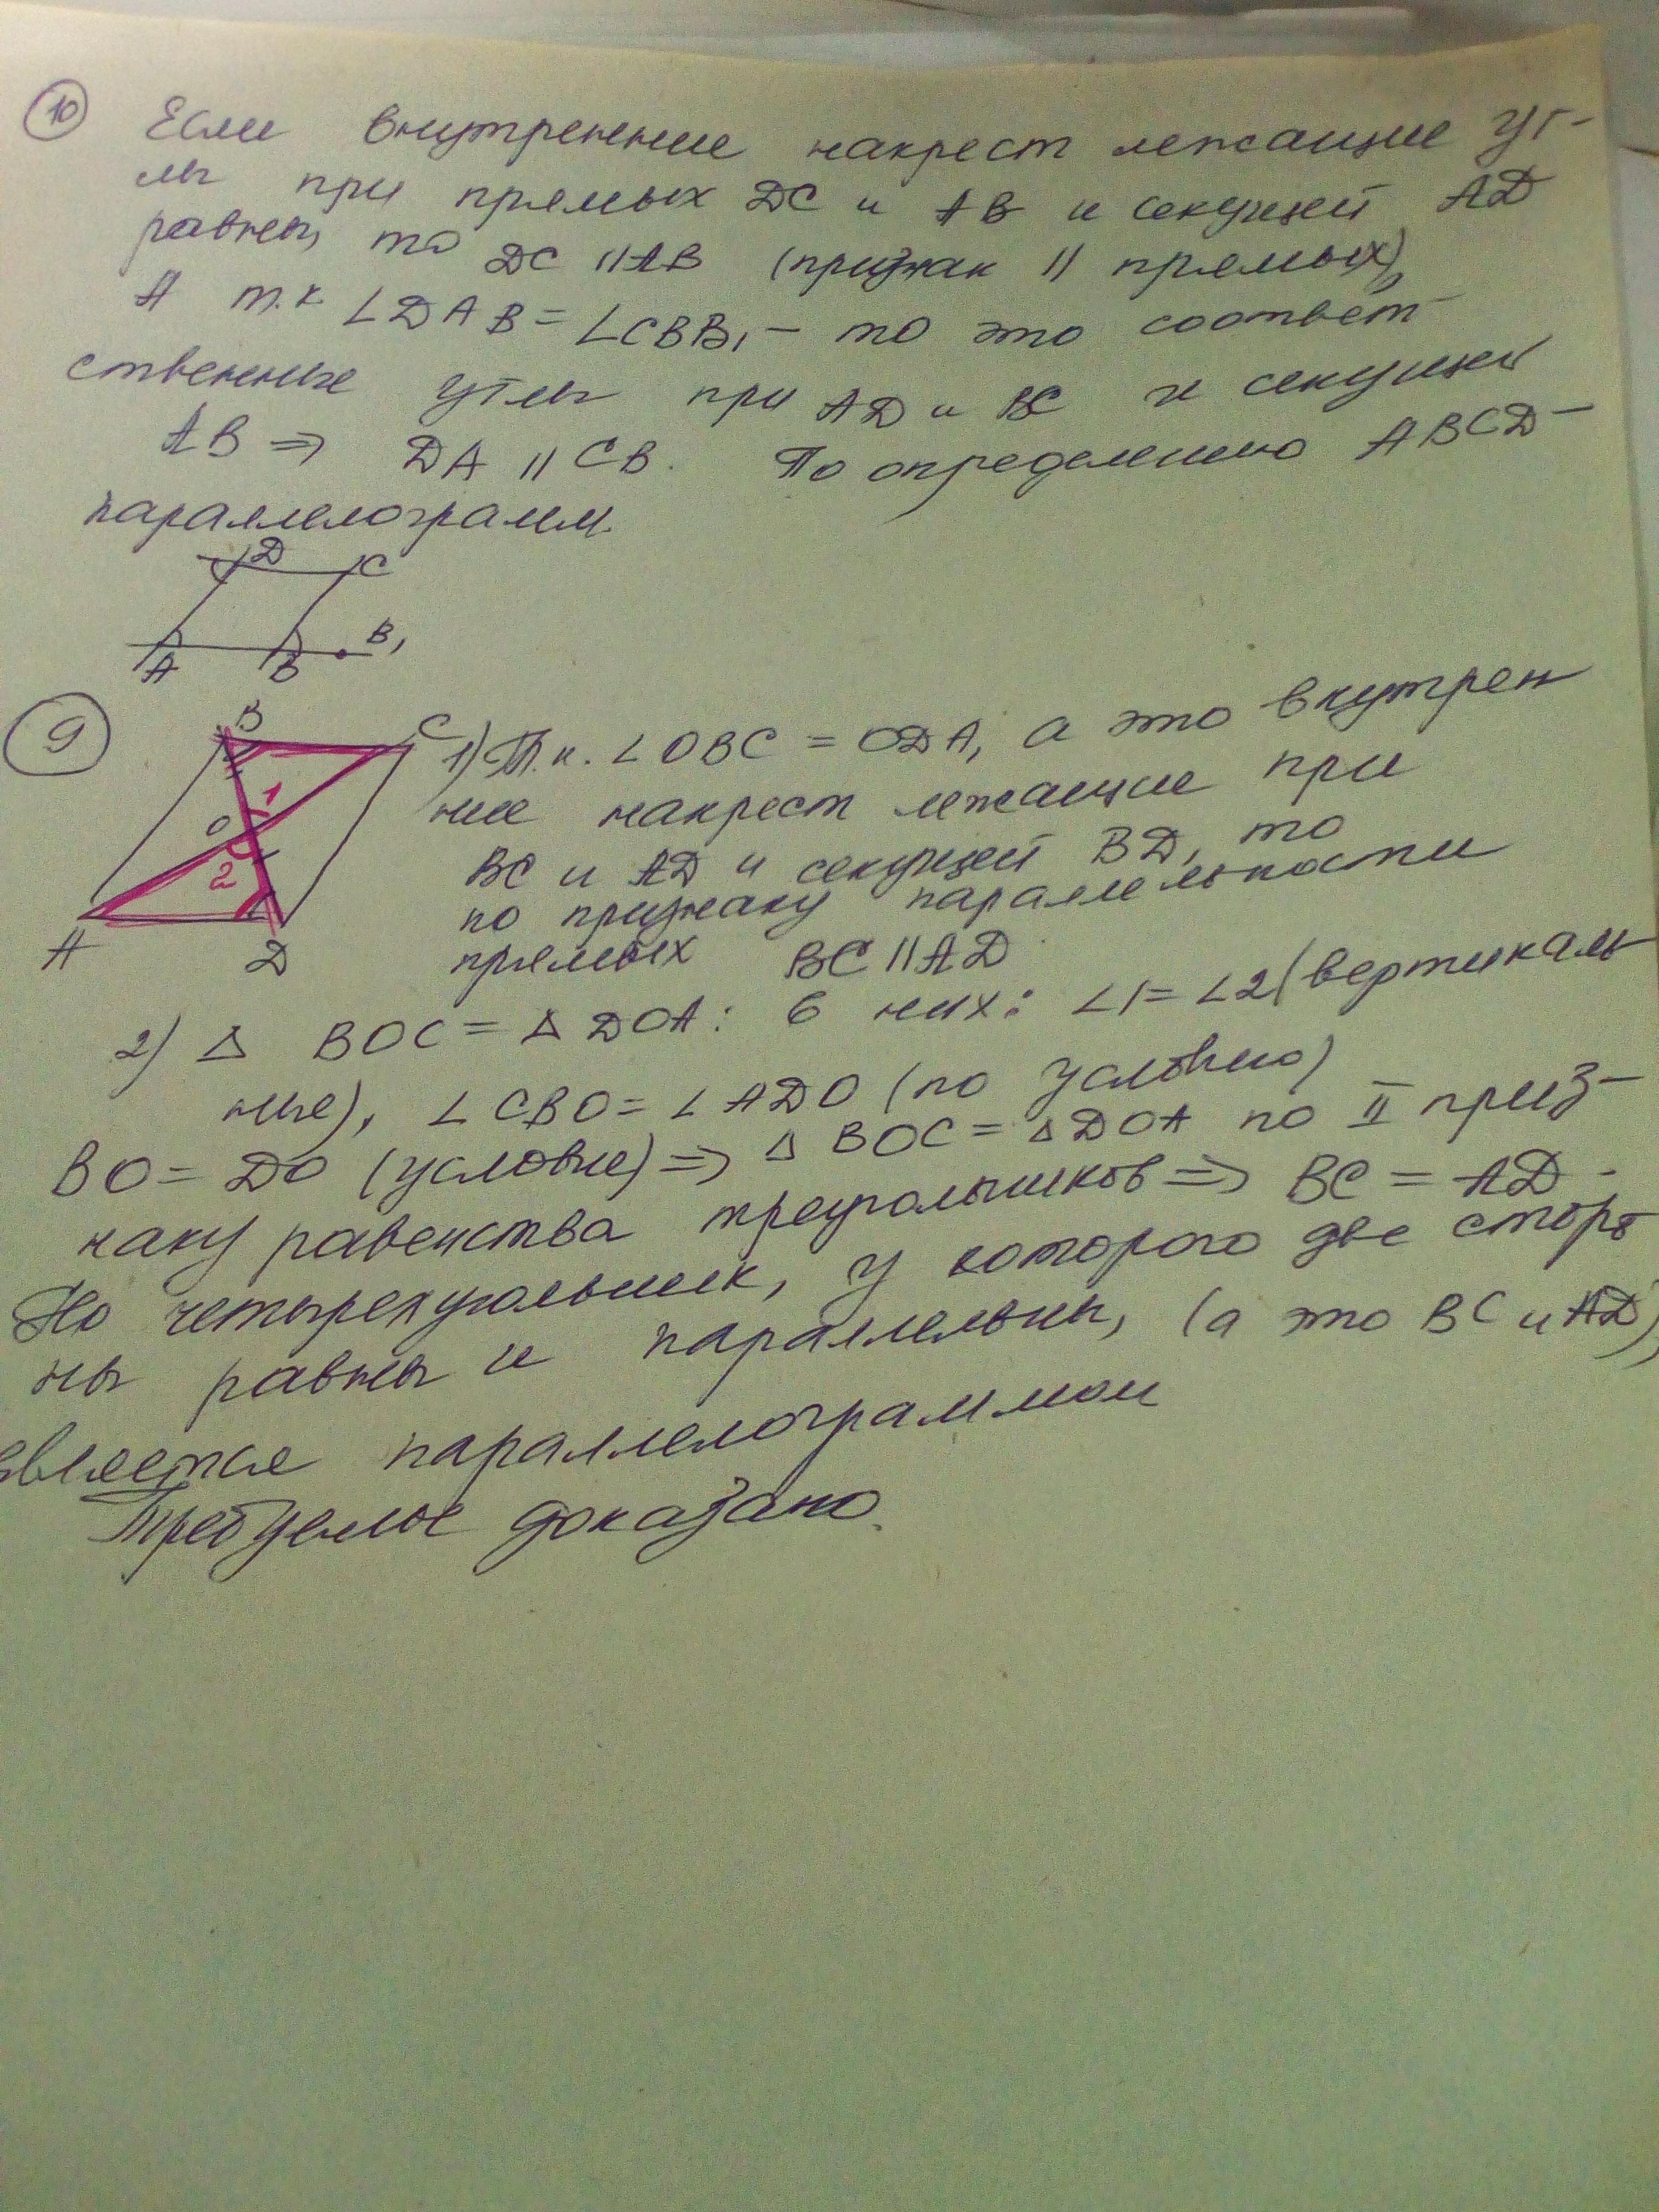 10 Если внутренние накрест лежащие уг-
лы при прямых DC и AB и секущей AD
равны, то DC || AB (признак || прямых),
А т.к ∠DAB = ∠CBB₁ – то это соответ-
ственные углы при AD и BC и секущей
AB ⇒ DA || CB. По определению ABCD –
параллелограмм.
D C
A B B₁
9
B C
1
O
2
A D
1) Т.к. ∠OBC = ODA, а это внутрен
ние накрест лежащие при
BC и AD и секущей BD, то
по признаку параллельности
прямых BC || AD
2) Δ BOC = Δ DOA: в них: ∠1 = ∠2 (вертикаль
ные), ∠CBO = ∠ADO (по условию)
BO = DO (условие) ⇒ Δ BOC = Δ DOA по II приз-
наку равенства треугольников ⇒ BC = AD.
Но четырехугольник, у которого две сторо
ны равны и параллельны, (а это BC и AD),
является параллелограммом
Требуемое доказано.